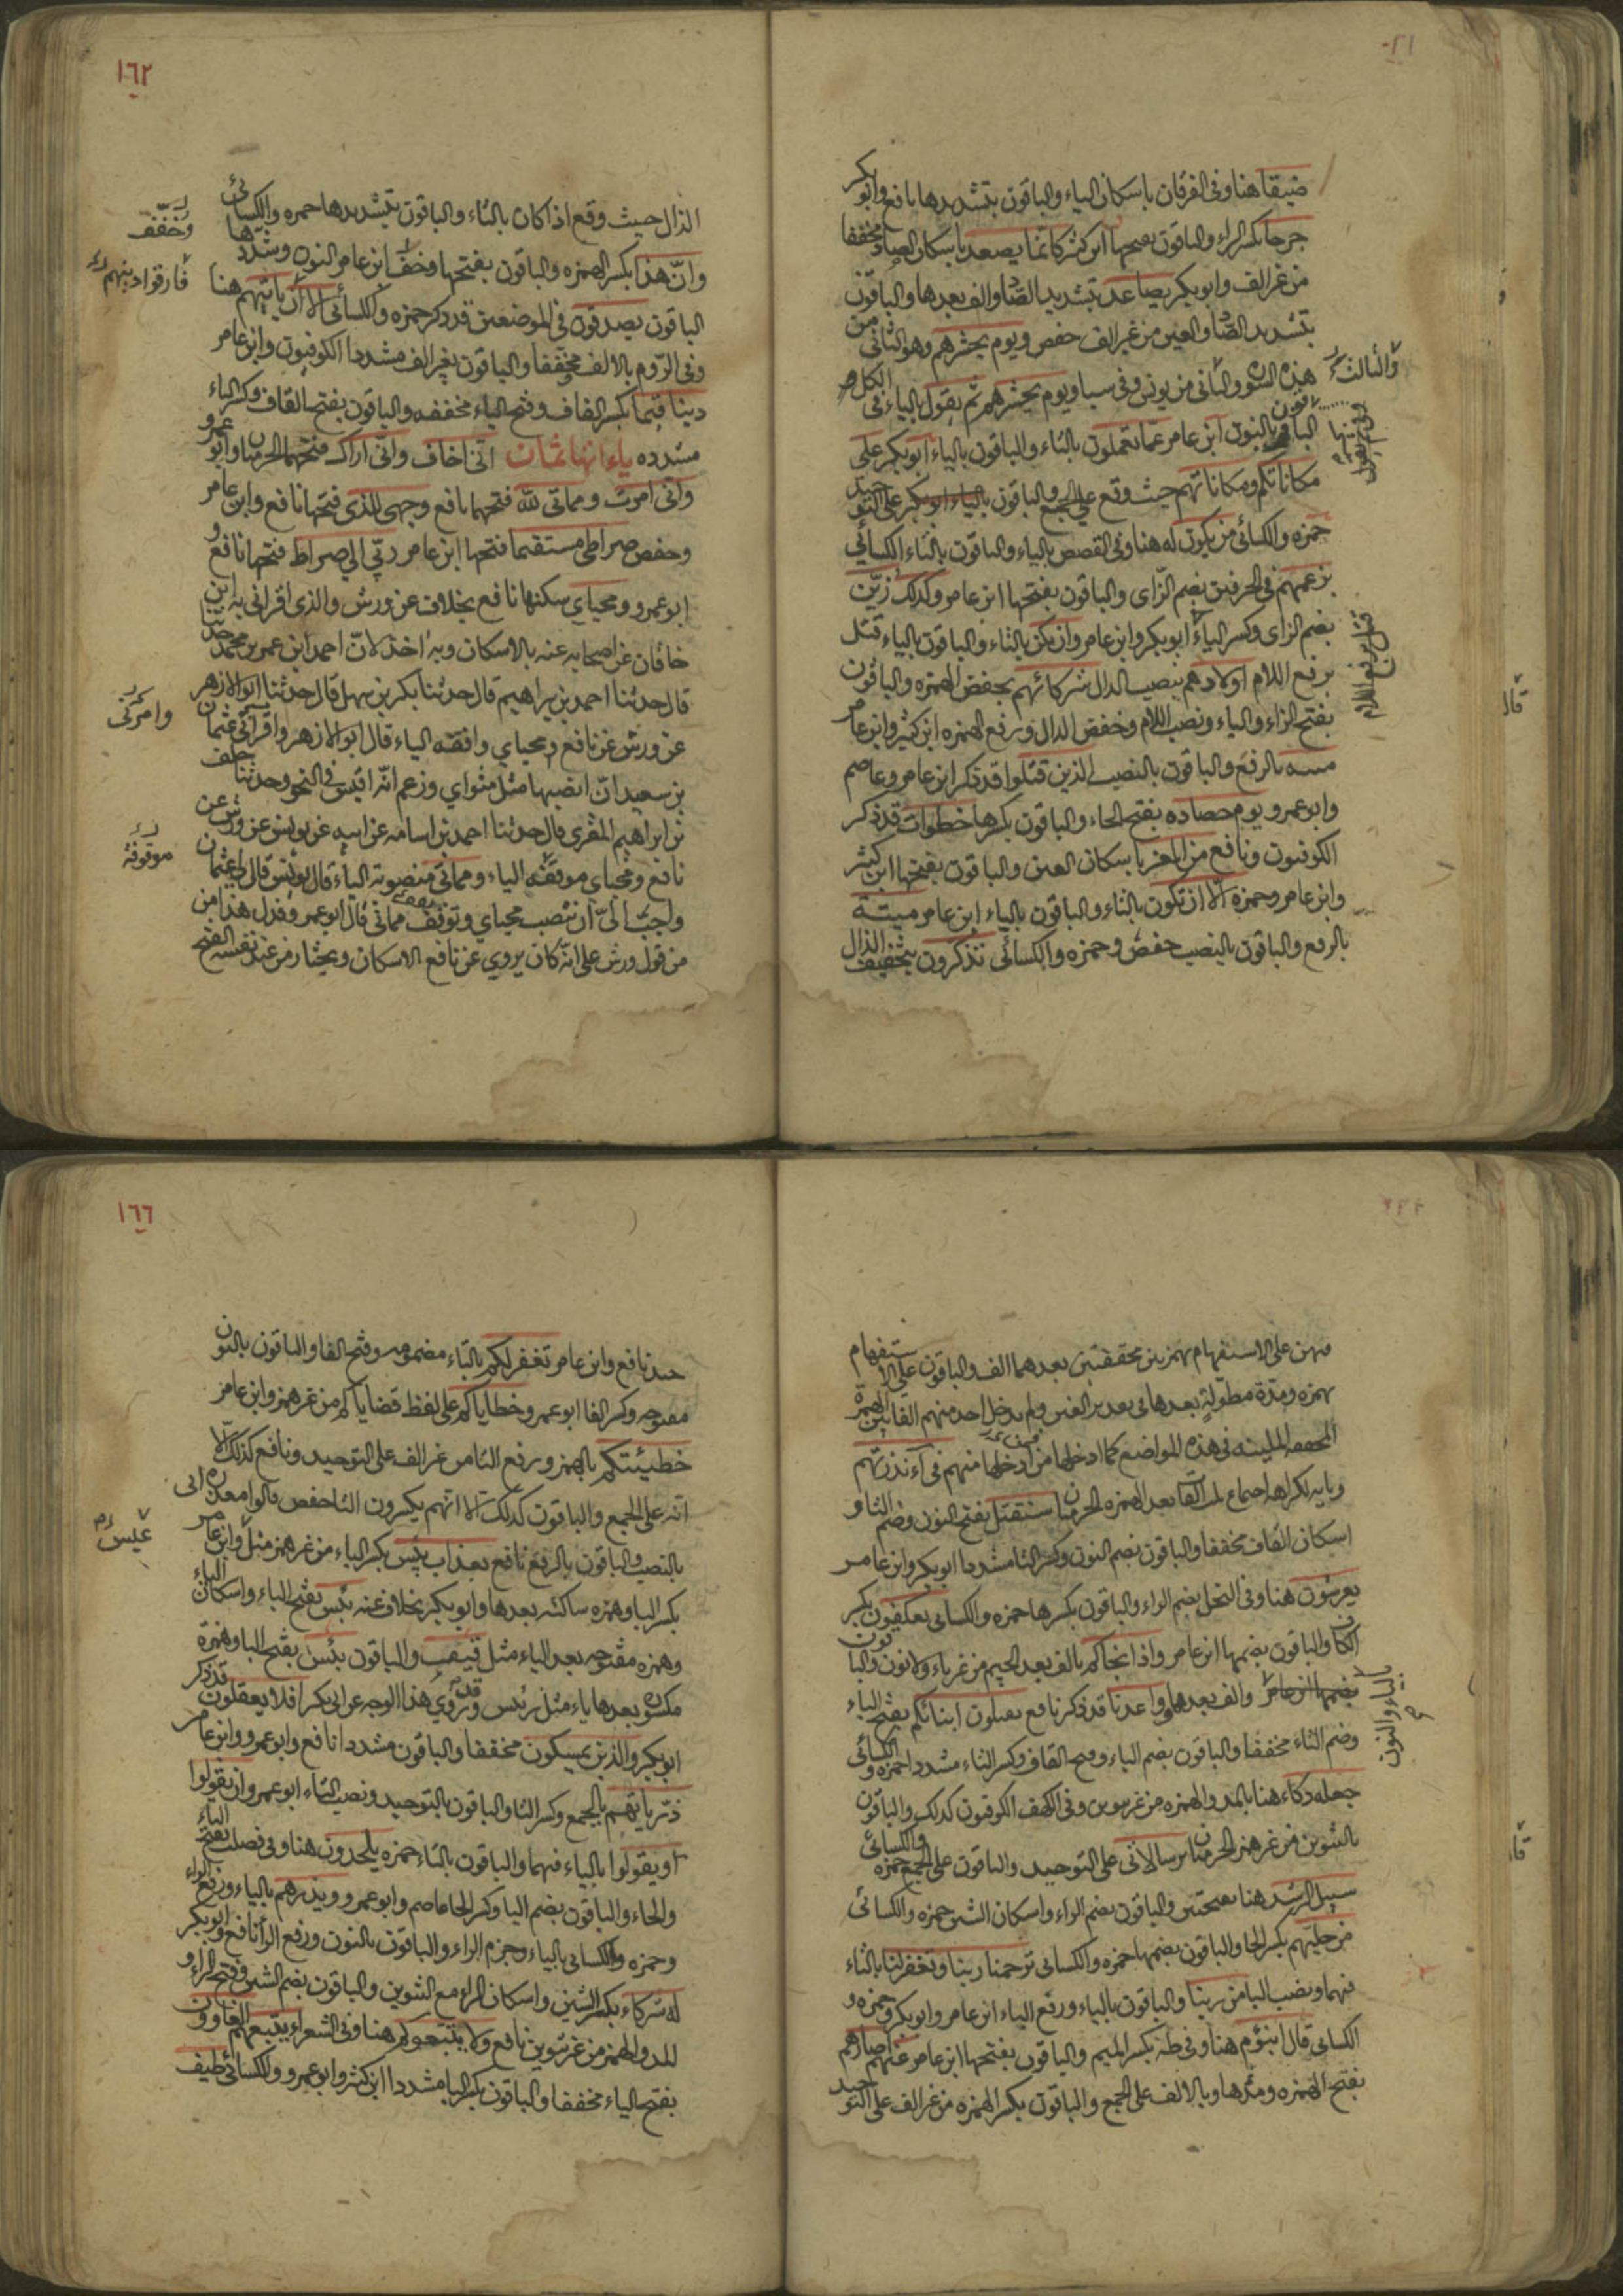 ضيقا هنا وفى الفرقان باسكان الياء والباقون بتشديدها نافع وابو بكر
حرجا بكسر الراء والباقون بفتحها ابن كثير كانما يصعد باسكان الصاد مخففا
من غير الف وابو بكر يصاعد بتشديد الصاد والف بعدها والباقون
بتشديد الصاد والعين من غير الف حفص ويوم يحشرهم وهو الثانى من
هذه السوره والثانى من يونس وفى سبا ويوم يحشرهم ثم يقول بالياء فى الكل
والثالث
الباقون بالنون ابن عامر عما تعملون بالتاء والباقون بالياء ابو بكر على
مكاناتكم ومكاناتهم حيث وقع على الجمع والباقون على التوحيد
حمزه والكسائى من يكون له هنا وفى القصص بالياء والباقون بالتاء الكسائى
بزعمهم فى الحرفين بضم الزاى والباقون بفتحها ابن عامر وكذلك زين
بضم الزاى وكسر الياء ابو بكر وابن عامر وان تكن بالتاء والباقون بالياء قتل
برفع اللام اولادهم بنصب الدال شركائهم بخفض الهمزه والباقون
قتل برفع اللام
بفتح الزاء والياء ونصب اللام وخفض الدال ورفع الهمزه ابن كثير وابن عامر
ميته بالرفع والباقون بالنصب الذين قتلوا قد ذكر ابن عامر وعاصم
وابو عمرو يوم حصاده بفتح الحاء والباقون بكسرها خطوات قد ذكر
الكوفيون ونافع من المعز باسكان العين والباقون بفتحها ابن كثير
وابن عامر وحمزه الا ان تكون بالتاء والباقون بالياء ابن عامر ميتة
بالرفع والباقون بالنصب حفص وحمزه والكسائى تذكرون بتخفيف الذال
١٦٢
الذال حيث وقع اذا كان بالتاء والباقون بتشديدها حمزه والكسائى
وانّ هذا بكسر الهمزه والباقون بفتحها وخفف ابن عامر النون وشددها
وخفّف
الباقون يصدفون فى الموضعين قد ذكر حمزه والكسائى الا ان ياتيهم هنا
فارقوا دينهم
وفى الرّوم بالالف مخففا والباقون بغير الف مشددا الكوفيون وابن عامر
دينا قيما بكسر القاف وفتح الياء مخففه والباقون بفتح القاف وكسر الياء
مشدده ياءاتها ثمان انى اخاف وانى اراك فتحهما الحرميان وابو عمرو
وانى امرت ومماتى لله فتحهما نافع وجهى للذى فتحها نافع وابن عامر
وحفص صراطى مستقيما فتحها ابن عامر ربّي الي صراط فتحها نافع و
ابو عمرو ومحياي سكنها نافع بخلاف عن ورش والذى اقرانى به ابن
خاقان عن اصحابه عنه بالاسكان وبه اخذ لانّ احمد ابن عمر بن محمد حدثنا
قال حدثنا احمد بن ابراهيم قال حدثنا بكر بن سهل قال حدثنا ابو الازهر
عن ورش عن نافع ومحياي واقفه الياء قال ابو الازهر واقرانى عثمان
وامرنى
بن سعيد انّ انصبها مثل مثواي وزعم انّه اقيس فى النحو وحدثنا خلف
بن ابراهيم المقرى قال حدثنا احمد بن اسامه عن ابيه عن يونس عن ورش عن
نافع ومحياى موقفه الياء ومماتى منصوبه الياء قال يونس قال لى عثمان
موقوفة
واحبّ الىّ ان تنصب محياي وتوقف مماتى قال ابو عمرو فدل هذا من
من قول ورش على انّه كان يروي عن نافع الاسكان ويختار من عند نفسه الفتح
فيهن على الاستفهام بهمزتين محققتين بعدهما الف والباقون على الاستفهام
بهمزه ومدّة مطوّلة بعدها فى تقدير الفين ولم يدخل احد منهم الفا بين الهمزة
المحققه والملينه فى هذه المواضع كما ادخلها من ادخلها منهم فى آءنذرتهم
وبابه لكراهه اجتماع الحرميان سنقتل بفتح النون وضم التا و
اسكان القاف مخففا والباقون بضم النون وكسر التا مشددا ابو بكر وابن عامر
يعرشون هنا وفى النحل بضم الراء والباقون بكسرها حمزه والكسائى يعكفون بكسر
الكاف والباقون بضمها ابن عامر واذ انجاكم بالف بعد الجيم من غير ياء ولا نون والباقون
بالياء والنون
والف بعدها وواعدنا قد ذكر نافع يقتلون ابنائكم بفتح الياء
وضم التاء مخففا والباقون بضم الياء وفتح القاف وكسر التاء مشددا حمزه والكسائى
جعله دكاء هنا بالمد والهمزه من غير تنوين وفى الكهف الكوفيون كذلك والباقون
بالتنوين من غير همز الحرميان برسالتى على التوحيد والباقون على الجمع حمزه والكسائى
سبيل الرشد هنا بفتحتين والباقون بضم الراء واسكان الشين حمزه والكسائى
من حليهم بكسر الحا والباقون بضمها حمزه والكسائى ترحمنا ربنا وتغفر لنا بالتاء
فيهما ونصب البا من ربنا والباقون بالياء ورفع الباء ابن عامر وابو بكر وحمزه و
الكسائى قال ابنؤم هنا وفى طه بكسر الميم والباقون بفتحها ابن عامر عنهم اصارهم
بفتح الهمزه ومدّها وبالالف على الجمع والباقون بكسر الهمزه من غير الف على التوحيد
١٦٦
نافع وابن عامر تغفر لكم بالتاء مضمومه وفتح الفا والباقون بالنون
مفتوحه وكسر الفا ابو عمرو خطاياكم على لفظ قضاياكم من غير همز وابن عامر
خطيئتكم بالهمز ورفع التا من غير الف على التوحيد ونافع كذلك الّا
انّه على الجمع والباقون كذلك الا انّهم يكسرون التا حفص قالوا معذره
بالنصب والباقون بالرفع نافع بعذاب بيس بكسر الباء من غير همز مثل وابن عامر
بكسر البا وهمزه ساكنه بعدها وابو بكر بخلاف عنه بيئس بفتح الباء واسكان الياء
وهمزه مفتوحه بعد الياء مثل والباقون بئيس بفتح البا وهمزة
مكسوره بعدها ياء مثل رئيس وقد رُوي هذا الوجه عن ابى بكر افلا يعقلون قد ذكر
ابو بكر والذين يمسكون مخففا والباقون مشددا نافع وابو عمرو وابن عامر
ذرّياتهم بالجمع وكسر التا والباقون بالتوحيد ونصب التاء ابو عمرو ان يقولوا
او يقولوا بالياء فيهما والباقون بالتاء حمزه يلحدون هنا وفى فصلت بفتح الياء
والحاء والباقون بضم اليا وكسر الحا عاصم وابو عمرو ويذرهم بالياء ورفع الراء
وحمزه والكسائى بالياء وجزم الراء والباقون بالنون ورفع الرا نافع وابو بكر
له شركاء بكسر الشين واسكان الراء مع التنوين والباقون بضم الشين وفتح الراء و
المد والهمز من غير تنوين نافع ولا يتبعوكم هنا وفى الشعراء يتبعهم الغاوون
بفتح الباء مخففا والباقون بكسر البا مشددا ابن كثير وابو عمرو والكسائى طيف